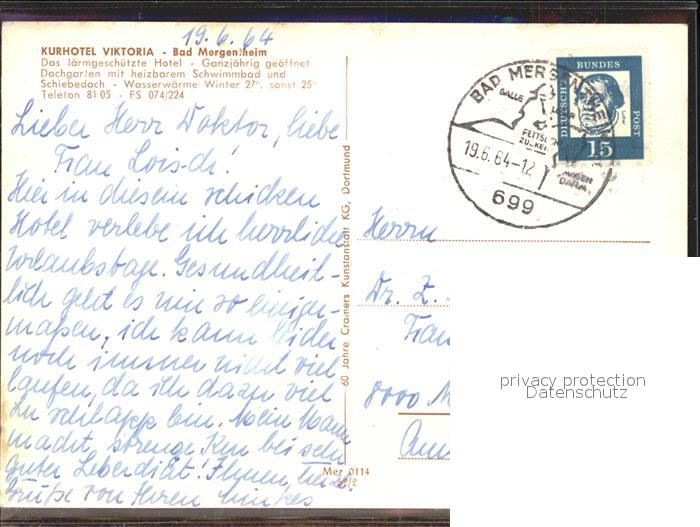 19.6.64
KURHOTEL VIKTORIA - Bad Mergentheim
Das lärmgeschützte Hotel - Ganzjährig geöffnet
Dachgarten mit heizbarem Schwimmbad und
Schiebedach - Wasserwärme Winter 27°, sonst 25°
Telefon 81 05 - FS 074/224
Lieber Herr Doktor, liebe
Frau
Hier in diesem schicken
Hotel verlebe ich herrliche
Urlaubstage. Gesundheit-
lich geht es mir so einiger-
maßen, ich kann leider
noch immer nicht viel
laufen, da ich dazu viel
zu schlapp bin. Mein Mann
macht strenge Kur bei sehr
guter Leberdiät! Ihnen, beide
Grüße von Ihren
60 Jahre Cramers Kunstanstalt KG, Dortmund
Mer 0114
BAD MERGENTHEIM
GALLE
FETTSUCHT
ZUCKER
MAGEN
DARM
19.6.64-12
699
DEUTSCHE BUNDES POST
15
Herrn
Dr. Z.
Frau
8000 M
privacy protection
Datenschutz